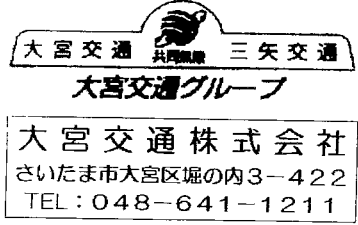 大宮交通 共同無線 三矢交通
大宮交通グループ
大宮交通株式会社
さいたま市大宮区堀の内3-422
TEL:048-641-1211